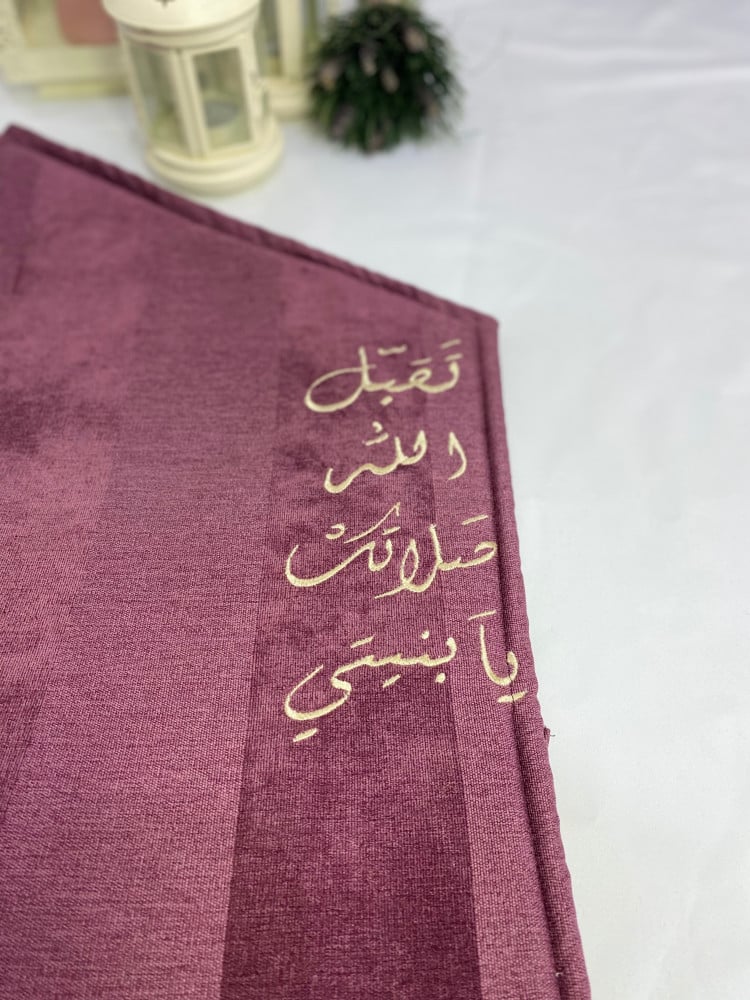 تَقَبّل
الله
صَلاتَكْ
يَا بنيتي